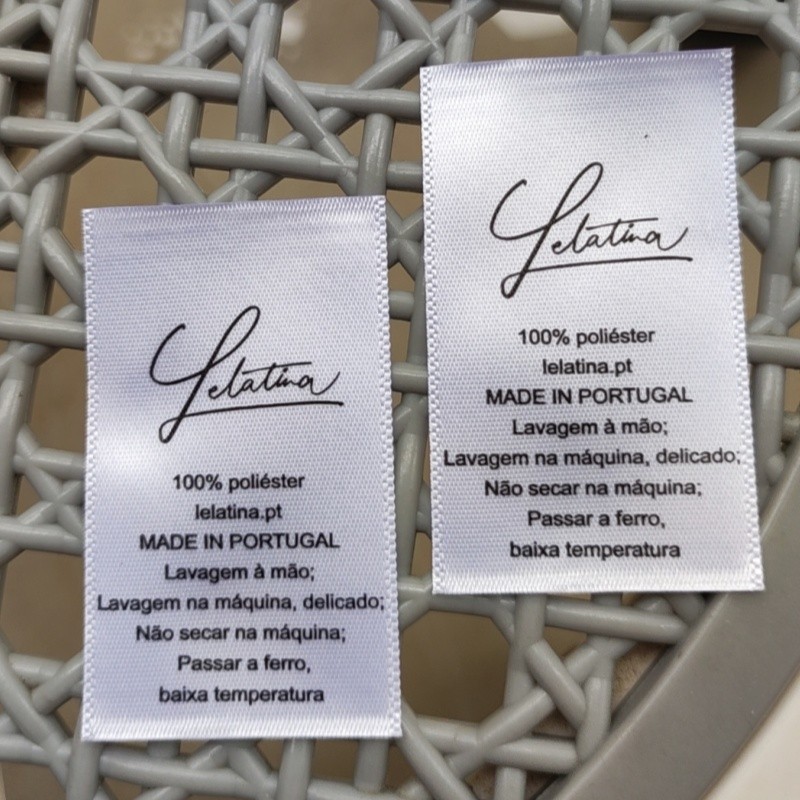 Lelatina
100% poliéster
lelatina.pt
MADE IN PORTUGAL
Lavagem à mão;
Lavagem na máquina, delicado;
Não secar na máquina;
Passar a ferro,
baixa temperatura
Lelatina
100% poliéster
lelatina.pt
MADE IN PORTUGAL
Lavagem à mão;
Lavagem na máquina, delicado;
Não secar na máquina;
Passar a ferro,
baixa temperatura